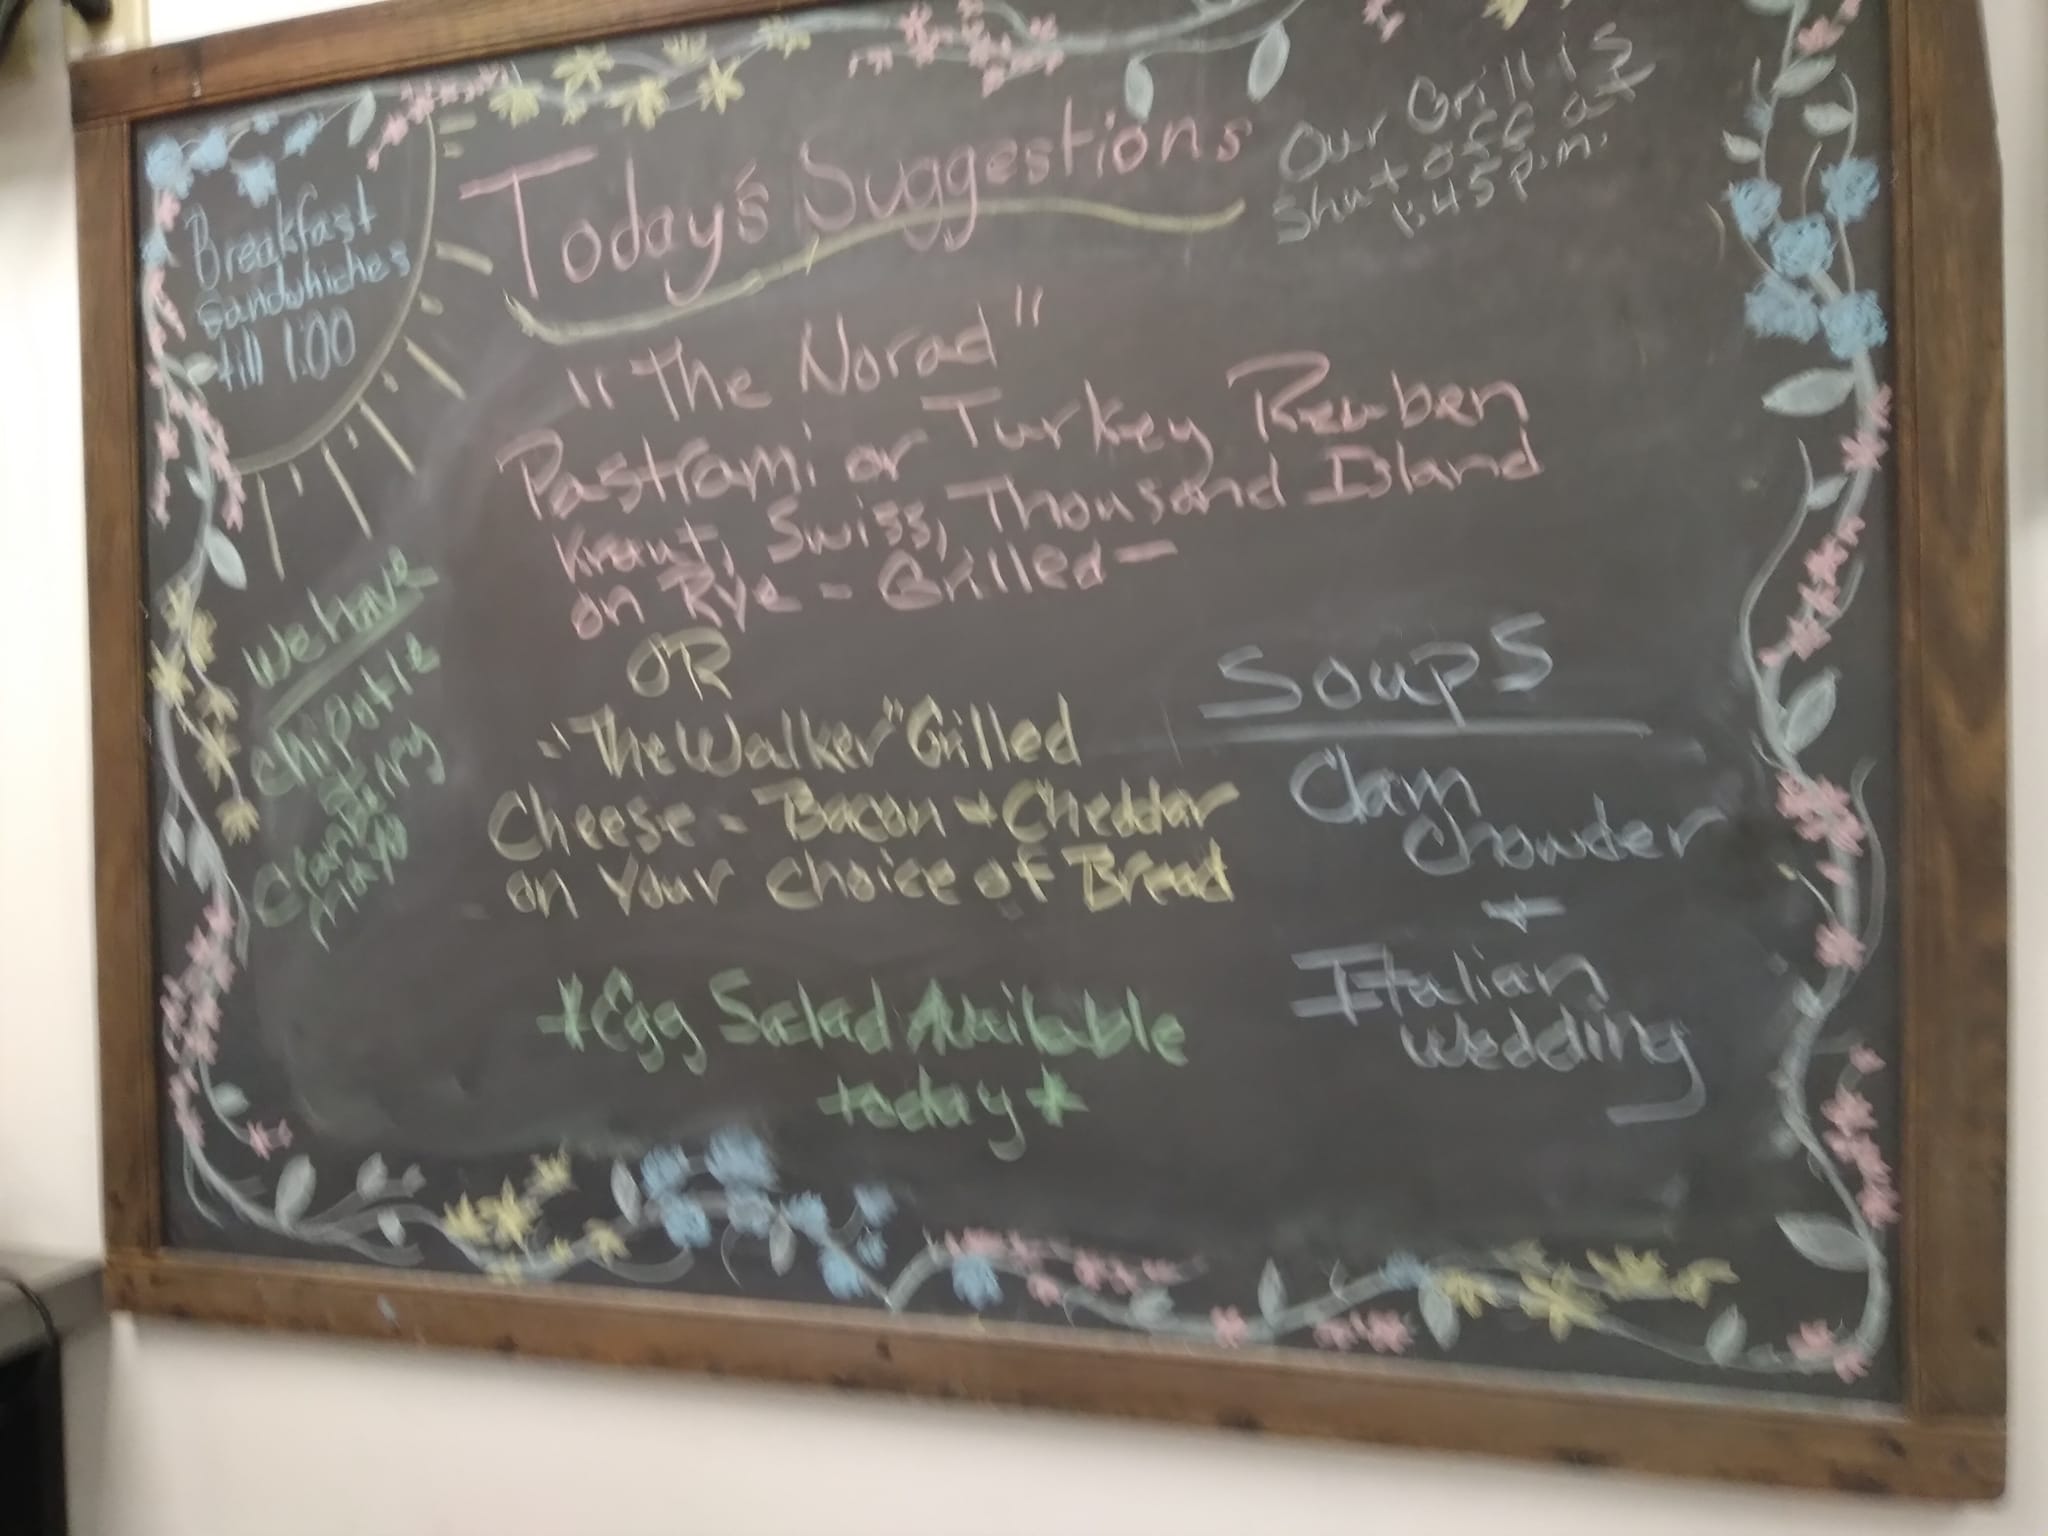 Today's Suggestions
Our Grill is
Shut off at
1:45 p.m.
Breakfast
Sandwhiches
till 1:00
"The Norad"
Pastrami or Turkey Reuben
Kraut, Swiss, Thousand Island
on Rye - Grilled -
OR
"The Walker" Grilled
Cheese - Bacon + Cheddar
on Your Choice of Bread
*Egg Salad Available
today*
We Have
Chipotle
Mayo
Soups
Clam
Chowder
+
Italian
Wedding